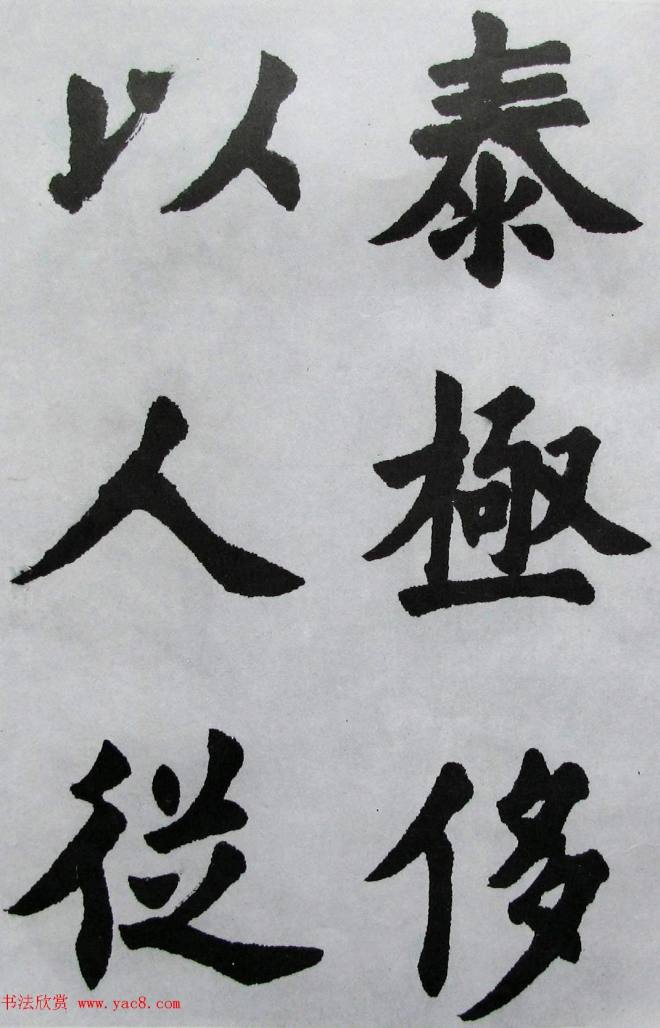 泰極侈
以人從
书法欣赏 www.yac8.com